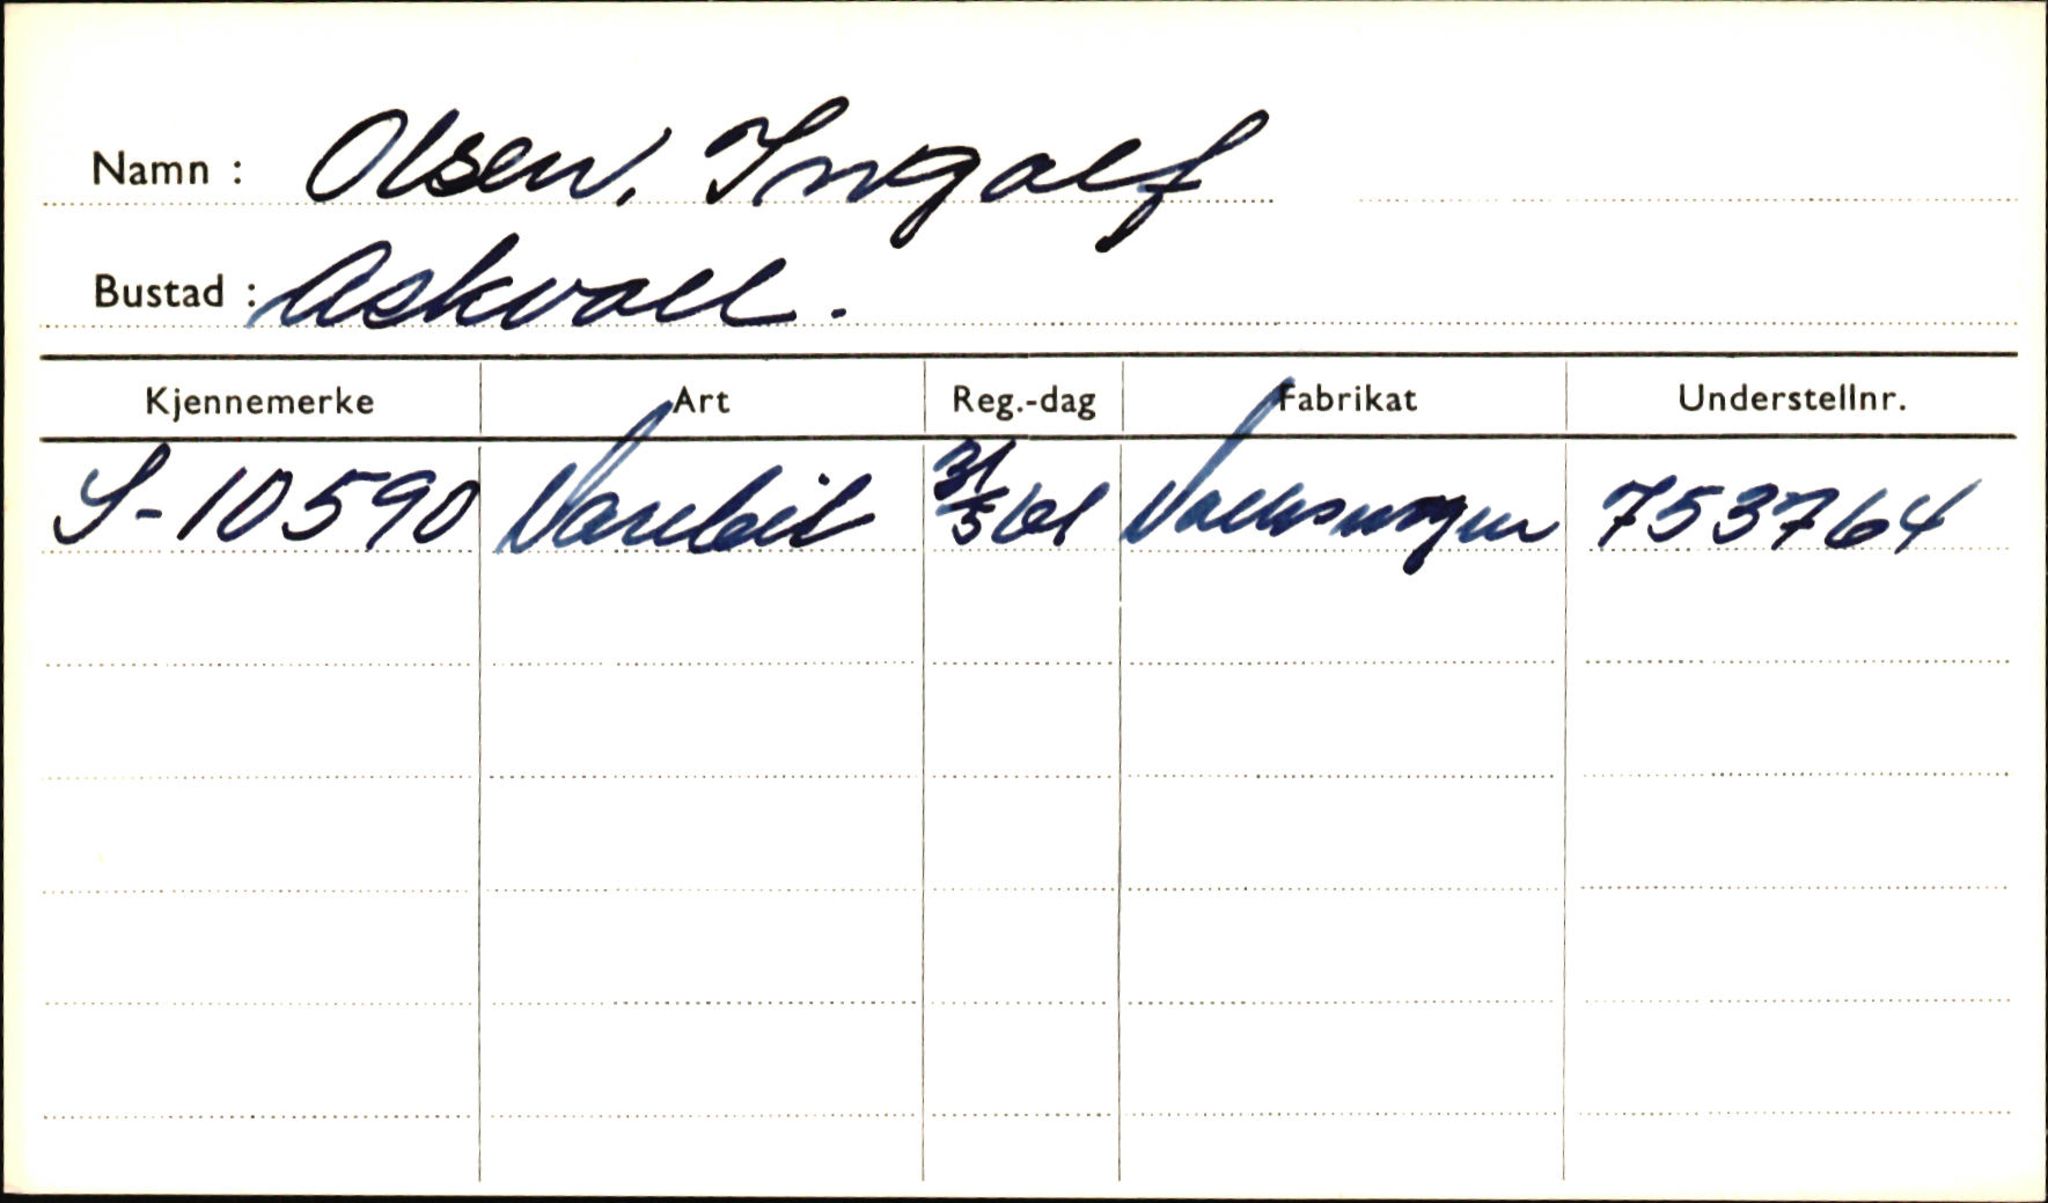 Namn : Olsen, Ingolf
Bustad : Askvoll.
Kjennemerke Art Reg.-dag Fabrikat Understellnr.
S-10590 Varebil 31/5 61 Volkswagen 753764